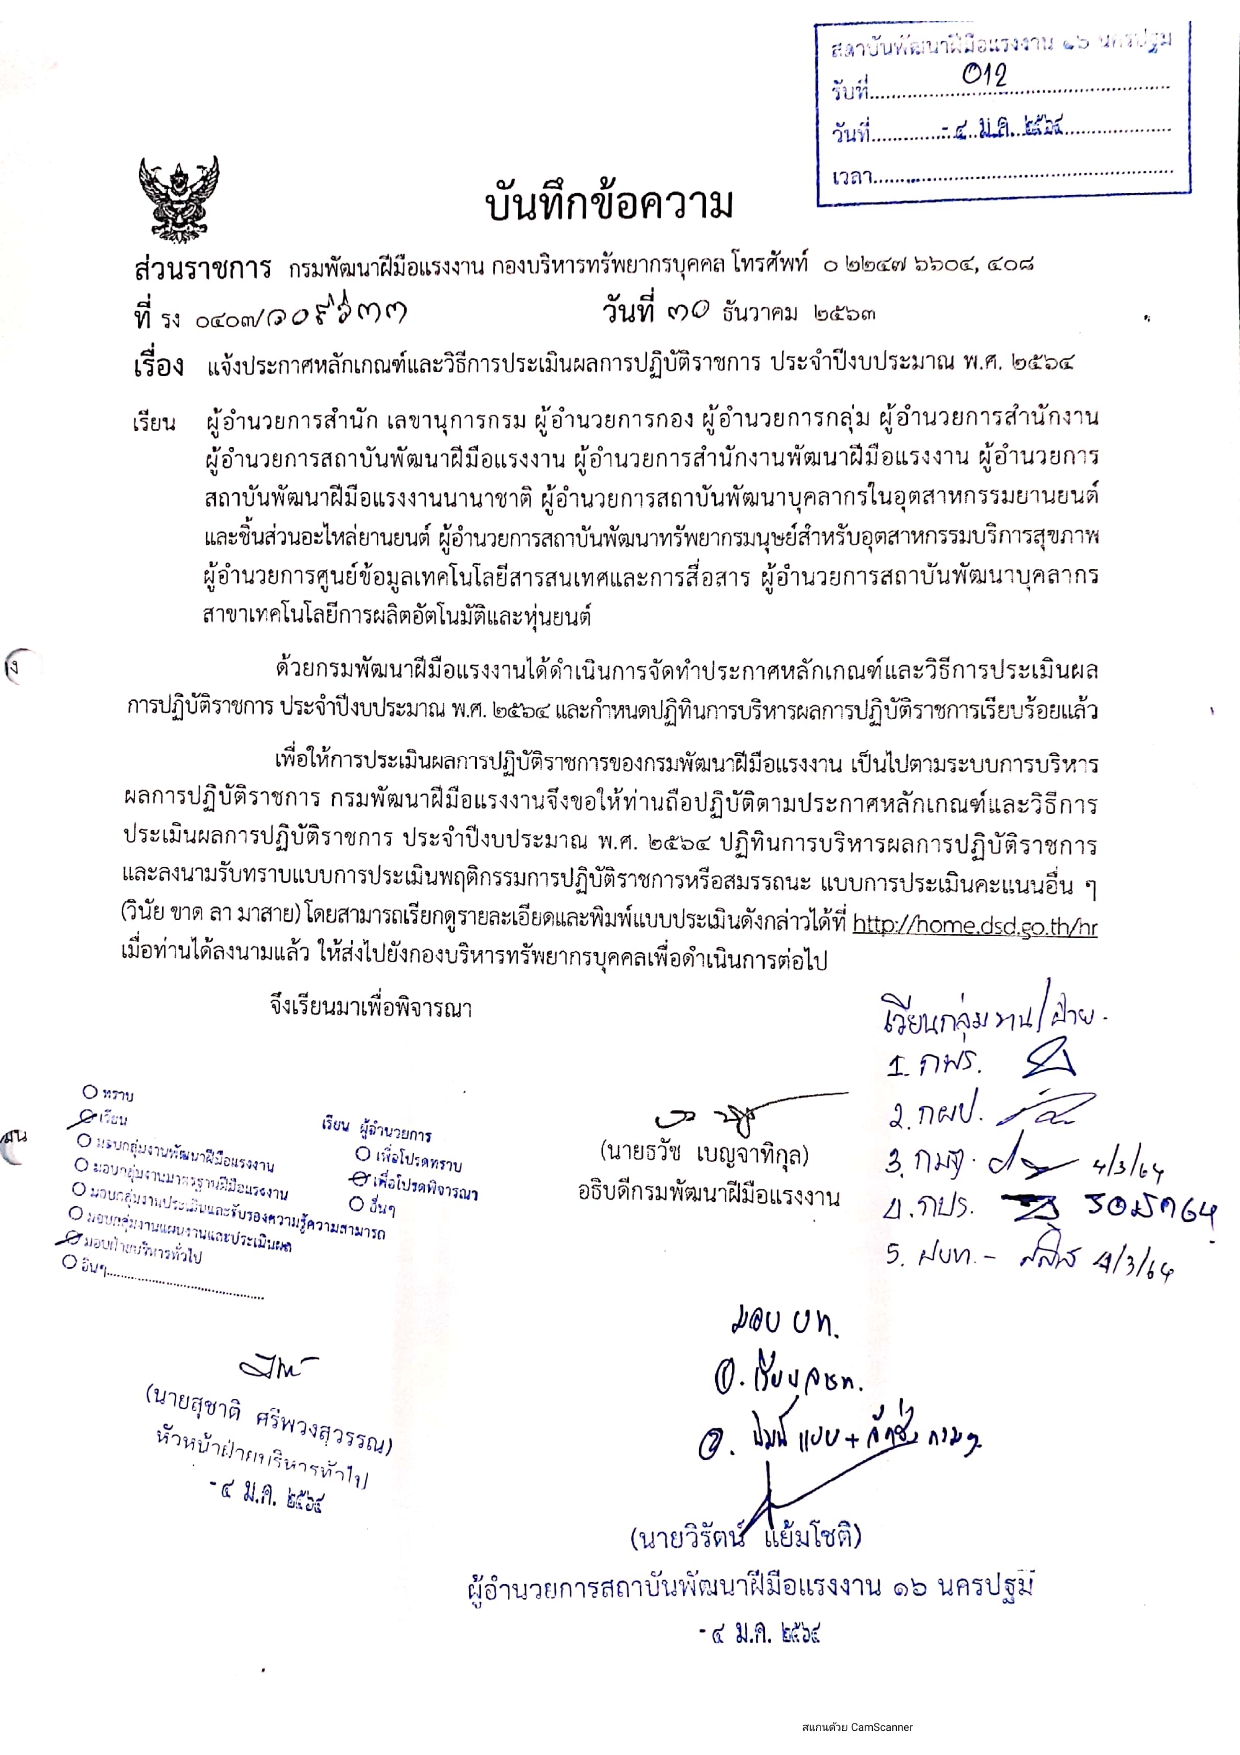 สถาบันพัฒนาฝีมือแรงงาน ๑๖ นครปฐม
รับที่ 012
วันที่ - ๔ ม.ค. ๒๕๖๔
เวลา
บันทึกข้อความ
ส่วนราชการ กรมพัฒนาฝีมือแรงงาน กองบริหารทรัพยากรบุคคล โทรศัพท์ ๐ ๒๒๔๗ ๖๖๐๔, ๔๐๘
ที่ รง ๐๔๐๗/ วันที่ ๓๐ ธันวาคม ๒๕๖๓
เรื่อง แจ้งประกาศหลักเกณฑ์และวิธีการประเมินผลการปฏิบัติราชการ ประจำปีงบประมาณ พ.ศ. ๒๕๖๔
เรียน ผู้อำนวยการสำนัก เลขานุการกรม ผู้อำนวยการกอง ผู้อำนวยการกลุ่ม ผู้อำนวยการสำนักงาน
ผู้อำนวยการสถาบันพัฒนาฝีมือแรงงาน ผู้อำนวยการสำนักงานพัฒนาฝีมือแรงงาน ผู้อำนวยการ
สถาบันพัฒนาฝีมือแรงงานนานาชาติ ผู้อำนวยการสถาบันพัฒนาบุคลากรในอุตสาหกรรมยานยนต์
และชิ้นส่วนอะไหล่ยานยนต์ ผู้อำนวยการสถาบันพัฒนาทรัพยากรมนุษย์สำหรับอุตสาหกรรมบริการสุขภาพ
ผู้อำนวยการศูนย์ข้อมูลเทคโนโลยีสารสนเทศและการสื่อสาร ผู้อำนวยการสถาบันพัฒนาบุคลากร
สาขาเทคโนโลยีการผลิตอัตโนมัติและหุ่นยนต์
ด้วยกรมพัฒนาฝีมือแรงงานได้ดำเนินการจัดทำประกาศหลักเกณฑ์และวิธีการประเมินผล
การปฏิบัติราชการ ประจำปีงบประมาณ พ.ศ. ๒๕๖๔ และกำหนดปฏิทินการบริหารผลการปฏิบัติราชการเรียบร้อยแล้ว
เพื่อให้การประเมินผลการปฏิบัติราชการของกรมพัฒนาฝีมือแรงงาน เป็นไปตามระบบการบริหาร
ผลการปฏิบัติราชการ กรมพัฒนาฝีมือแรงงานจึงขอให้ท่านถือปฏิบัติตามประกาศหลักเกณฑ์และวิธีการ
ประเมินผลการปฏิบัติราชการ ประจำปีงบประมาณ พ.ศ. ๒๕๖๔ ปฏิทินการบริหารผลการปฏิบัติราชการ
และลงนามรับทราบแบบการประเมินพฤติกรรมการปฏิบัติราชการหรือสมรรถนะ แบบการประเมินคะแนนอื่น ๆ
(วินัย ขาด ลา มาสาย) โดยสามารถเรียกดูรายละเอียดและพิมพ์แบบประเมินดังกล่าวได้ที่ http://home.dsd.go.th/hr
เมื่อท่านได้ลงนามแล้ว ให้ส่งไปยังกองบริหารทรัพยากรบุคคลเพื่อดำเนินการต่อไป
จึงเรียนมาเพื่อพิจารณา
เวียนกลุ่มงาน/ฝ่าย
1. กพร.
2. กผป.
3. กมฐ. 4/3/64
4. กปร.
5. ฝบท. - 4/3/64
(นายธวัช เบญจาทิกุล)
อธิบดีกรมพัฒนาฝีมือแรงงาน
ทราบ
เรียน
มอบกลุ่มงานพัฒนาฝีมือแรงงาน
มอบกลุ่มงานมาตรฐานฝีมือแรงงาน
มอบกลุ่มงานประเมินและรับรองความรู้ความสามารถ
มอบกลุ่มงานแผนงานและประเมินผล
มอบฝ่ายบริหารทั่วไป
อื่นๆ
เรียน ผู้อำนวยการ
เพื่อโปรดทราบ
เพื่อโปรดพิจารณา
อื่นๆ
(นายสุชาติ ศรีพวงสุวรรณ)
หัวหน้าฝ่ายบริหารทั่วไป
- ๔ ม.ค. ๒๕๖๔
มอบ บท.
(นายวิรัตน์ แย้มโชติ)
ผู้อำนวยการสถาบันพัฒนาฝีมือแรงงาน ๑๖ นครปฐม
- ๔ ม.ค. ๒๕๖๔
สแกนด้วย CamScanner